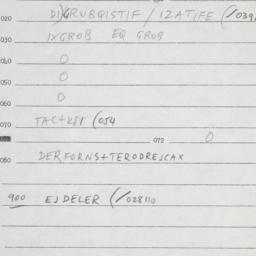 020 DIXGRUBQISTIF / IZATIFE (/039
030 IXGROB EQ GROB
040 O
050 O
060 O
070 TAC+K81 (054
072 O
080 DERFORNS+TERODREJCAX
900 EJDELER (/028110